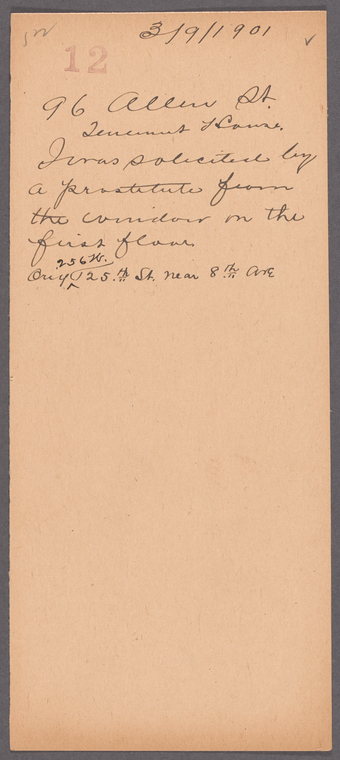 3/9/1901
12
96 Allen St.
Tenement House.
I was solicited by
a prostitute from
the window on the
first floor
256 W.
125th St. near 8th Ave